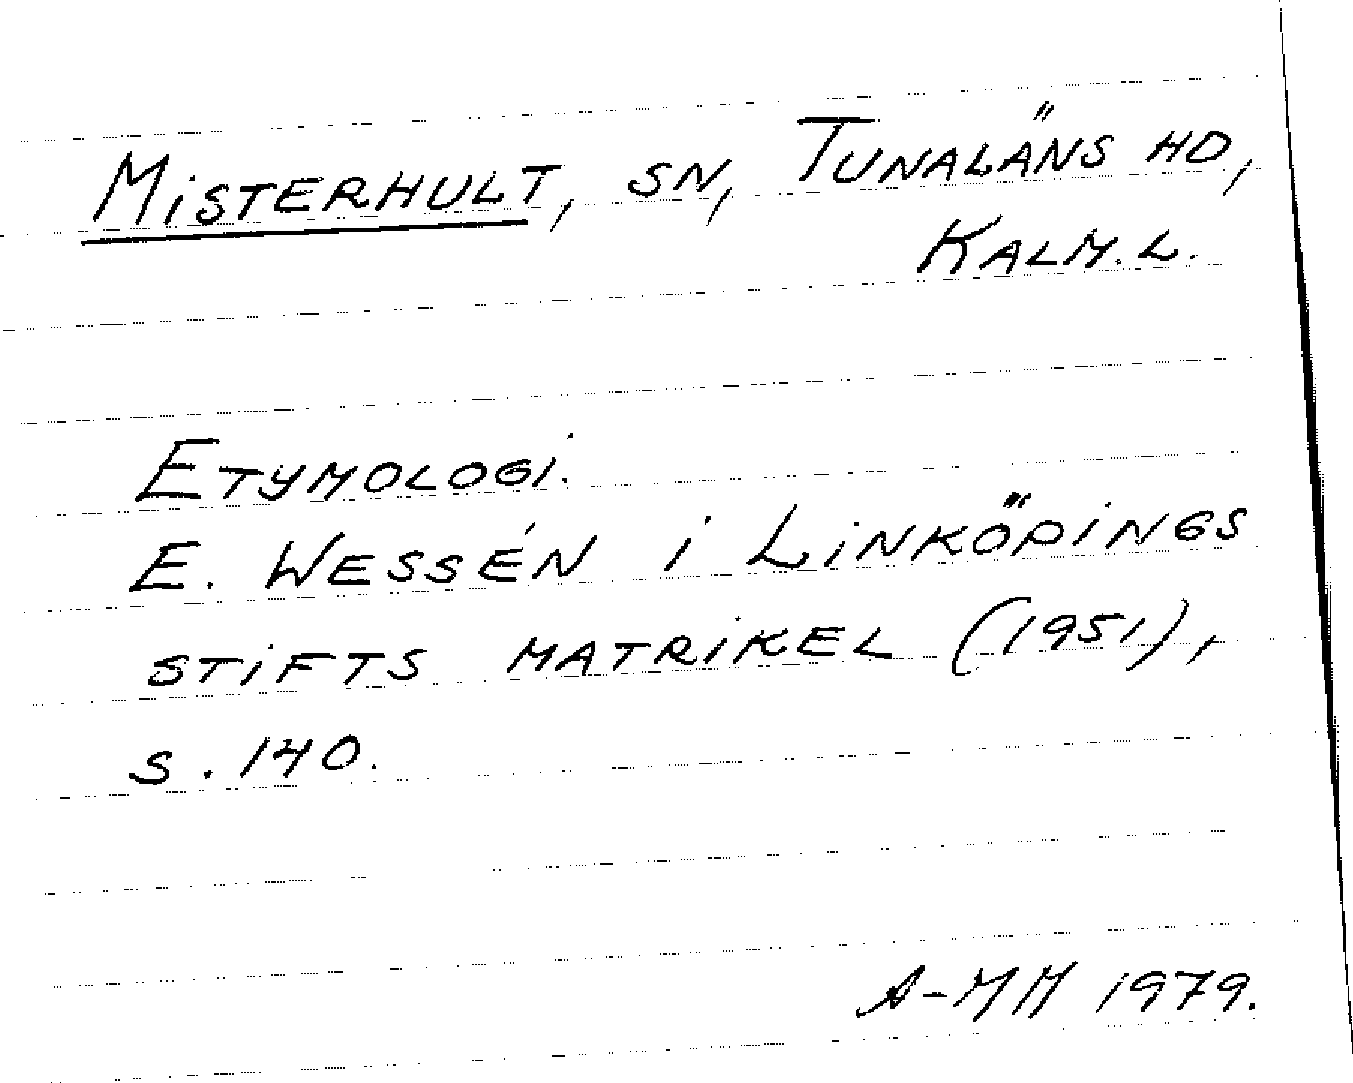 MISTERHULT, SN, TUNALÄNS HD,
KALM.L.
ETYMOLOGI.
E. WESSÉN I LINKÖPINGS
STIFTS MATRIKEL (1951),
S. 140.
A-MH 1979.